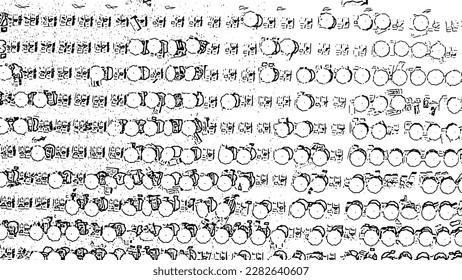 shutterstock.com · 2282640607